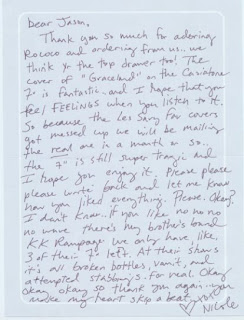 Dear Jason,
Thank you so much for adoring
Rococo and ordering from us.. we
think yr the top drawer too! The
cover of "Graceland" on the Casiotone
7" is fantastic and I hope that you
feel FEELINGS when you listen to it.
So because the Les Sans Fou covers
got messed up we will be mailing
the real one in a month or so..
the 7" is still super Trangi and
I hope you enjoy it. Please please
please write back and let me know
how you liked everything. Please. Okay,
I don't know.. If you like no no no
no wave there's my brother's band
KK Rampage we only have, like,
3 of their 7"s left. At their shows
it's all broken bottles, vomit, and
attempted stabbings. For real. Okay
okay okay so thank you again.. you
make my heart skip a beat
xoxo
Nicole